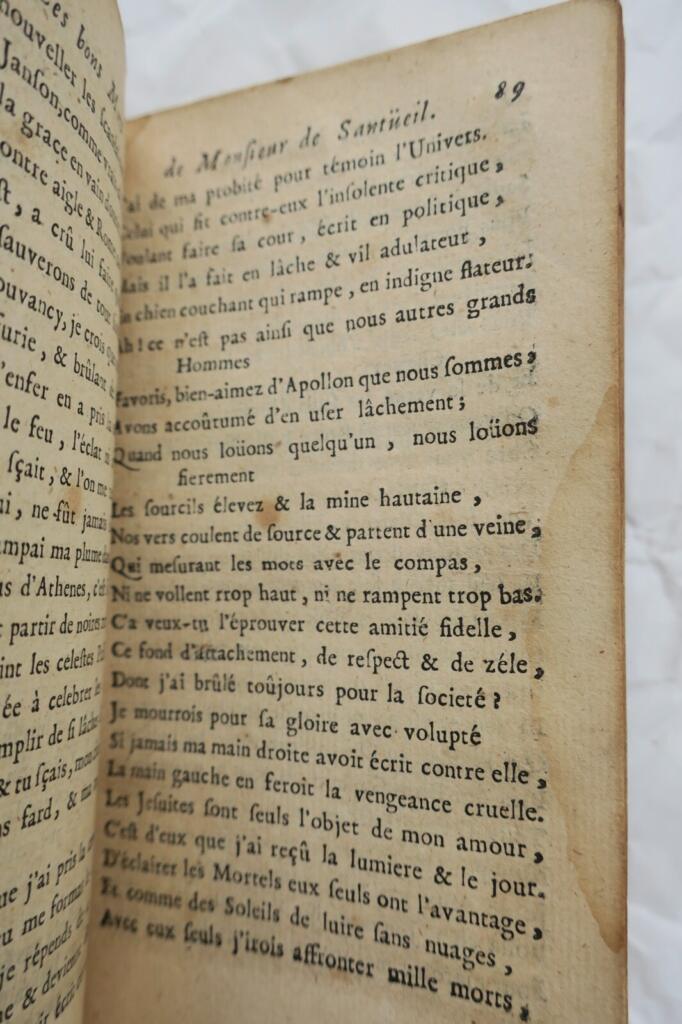 ces bons
nouveller les
Janſon, comme
la grace en vain
ontre aigle &
ſt, a crû lui
ſauverons de tou
ouvancy, je crois
furie, & brûla
'enfer en a pris
le feu, l'éclat
ſçait, & l'on me
i, ne-fût jamais
mpai ma plume
s d'Athenes,
partir de noires
int les celeſtes
ée à celebrer
mplir de ſi lâch
& tu ſçais,
s fard, &
ue j'ai pris
u me forma
je répends
e & devien
de Monſieur de Santüeil. 89
'ai de ma probité pour témoin l'Univers.
Celui qui fit contre-eux l'inſolente critique,
Voulant faire ſa cour, écrit en politique,
Mais il l'a fait en lâche & vil adulateur,
Un chien couchant qui rampe, en indigne flateur:
Ah! ce n'eſt pas ainſi que nous autres grands
Hommes
Favoris, bien-aimez d'Apollon que nous ſommes;
Avons accoûtumé d'en uſer lâchement;
Quand nous loüons quelqu'un, nous loüons
fierement
Les ſourcils élevez & la mine hautaine,
Nos vers coulent de ſource & partent d'une veine,
Qui meſurant les mots avec le compas,
Ni ne vollent trop haut, ni ne rampent trop bas.
C'a veux-tu l'éprouver cette amitié fidelle,
Ce fond d'attachement, de reſpect & de zéle,
Dont j'ai brûlé toûjours pour la societé?
Je mourrois pour ſa gloire avec volupté
Si jamais ma main droite avoit écrit contre elle,
La main gauche en feroit la vengeance cruelle.
Les Jeſuites ſont ſeuls l'objet de mon amour,
C'eſt d'eux que j'ai reçû la lumiere & le jour.
D'éclairer les Mortels eux ſeuls ont l'avantage,
Et comme des Soleils de luire ſans nuages,
Avec eux ſeuls j'irois affronter mille morts,